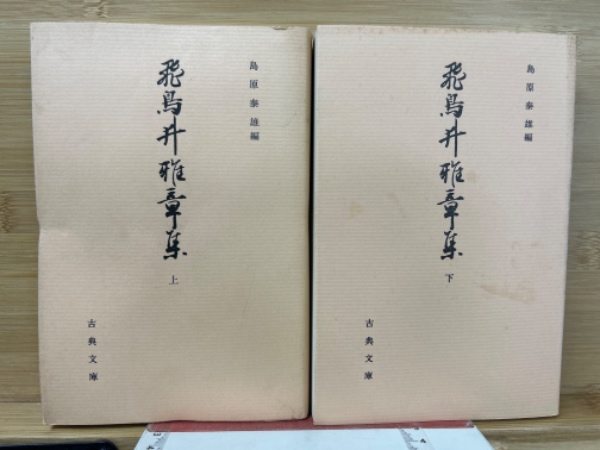 島原泰雄編
飛鳥井雅章集
上
古典文庫
島原泰雄編
飛鳥井雅章集
下
古典文庫